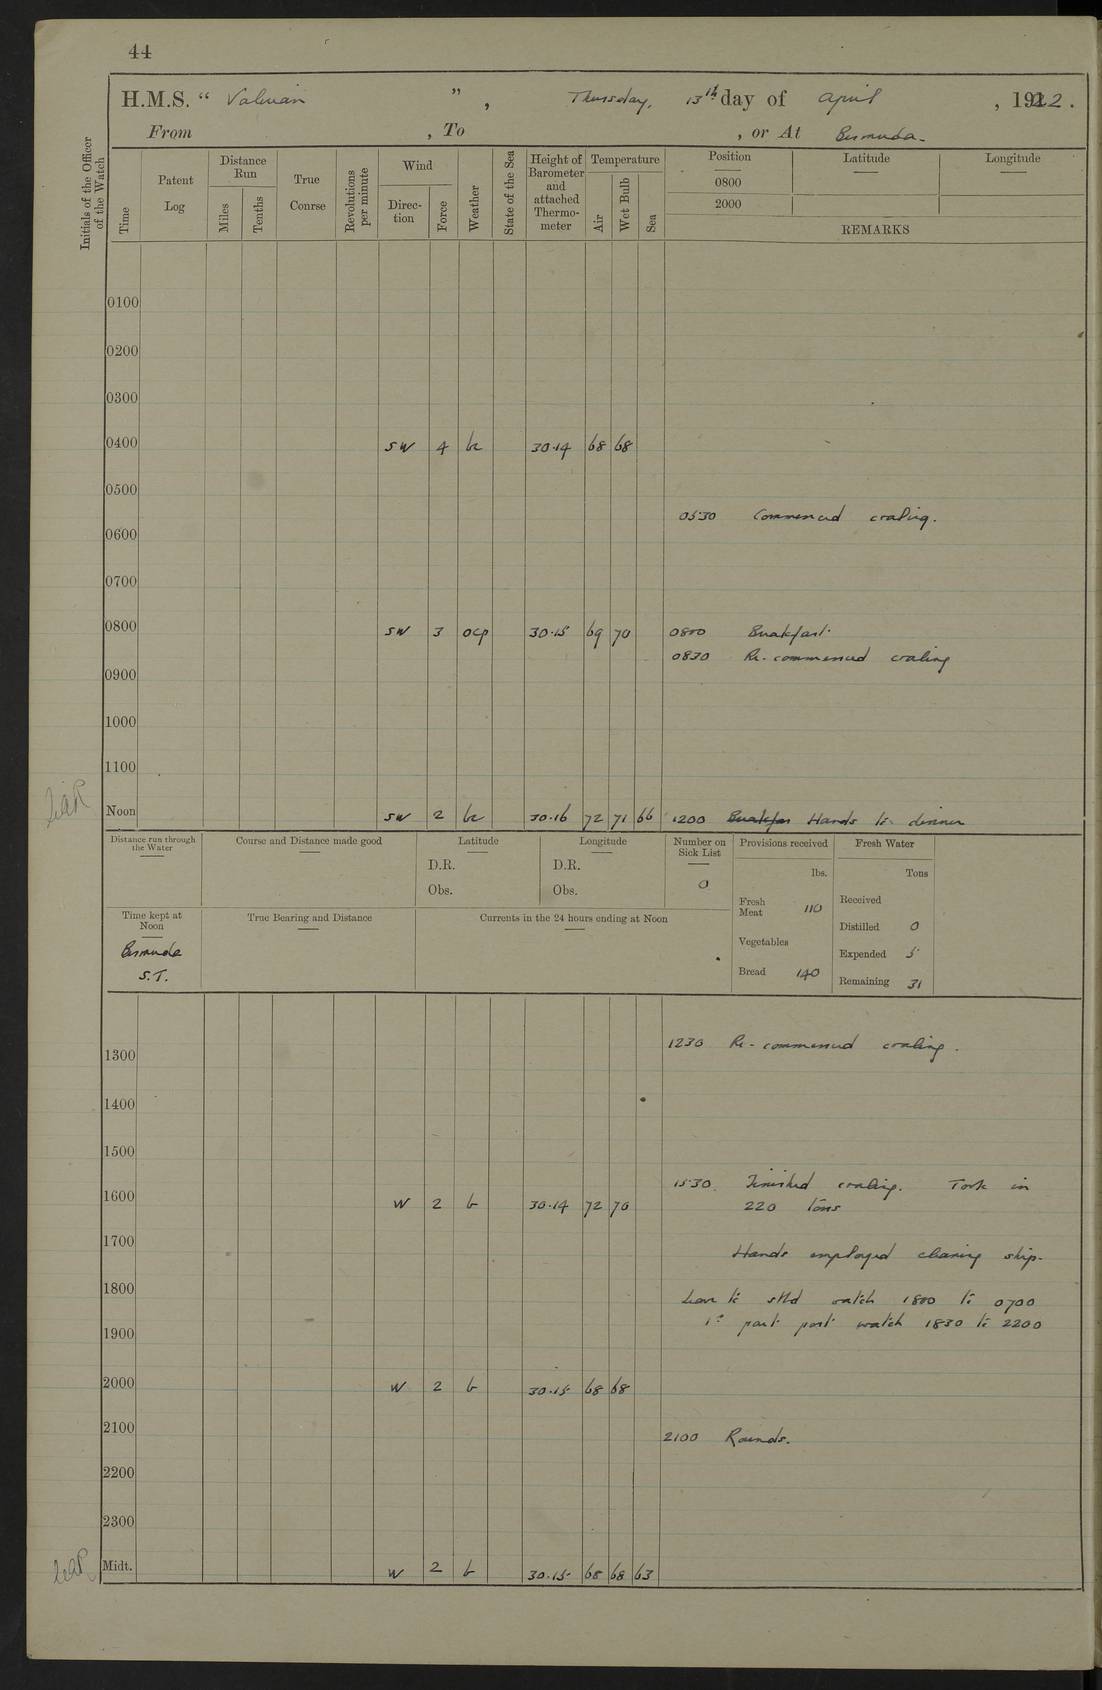 44
H.M.S. “ Valerian ” , Thursday, 13th day of April , 1922.
From , To , or At Bermuda.
Initials of the Officer of the Watch
Time
Patent Log
Distance Run
Miles
Tenths
True Course
Revolutions per minute
Wind
Direc-tion
Force
Weather
State of the Sea
Height of Barometer and attached Thermo-meter
Temperature
Air
Wet Bulb
Sea
Position
Latitude
Longitude
0800
2000
REMARKS
0100
0200
0300
0400 SW 4 bc 30.14 68 68
0500
0530 Commenced coaling.
0600
0700
0800 SW 3 ocp 30.15 69 70 0800 Breakfast.
0830 Re-commenced coaling
0900
1000
1100
Noon SW 2 bc 30.16 72 71 66 1200 Breakfas Hands to dinner
Distance run through the Water
Course and Distance made good
Latitude
D.R.
Obs.
Longitude
D.R.
Obs.
Number on Sick List
0
Provisions received
lbs.
Fresh Meat 110
Vegetables
Bread 140
Fresh Water
Tons
Received
Distilled 0
Expended 5
Remaining 31
Time kept at Noon
Bermuda
S.T.
True Bearing and Distance
Currents in the 24 hours ending at Noon
1230 Re-commenced coaling.
1300
1400
1500
1530 Finished coaling. Took in
1600 W 2 b 30.14 72 70 220 tons
1700 Hands employed cleaning ship.
1800 Leave to stbd watch 1800 to 0700
1st part port watch 1830 to 2200
1900
2000 W 2 b 30.15 68 68
2100
2100 Rounds.
2200
2300
Midt. W 2 b 30.15 68 68 63